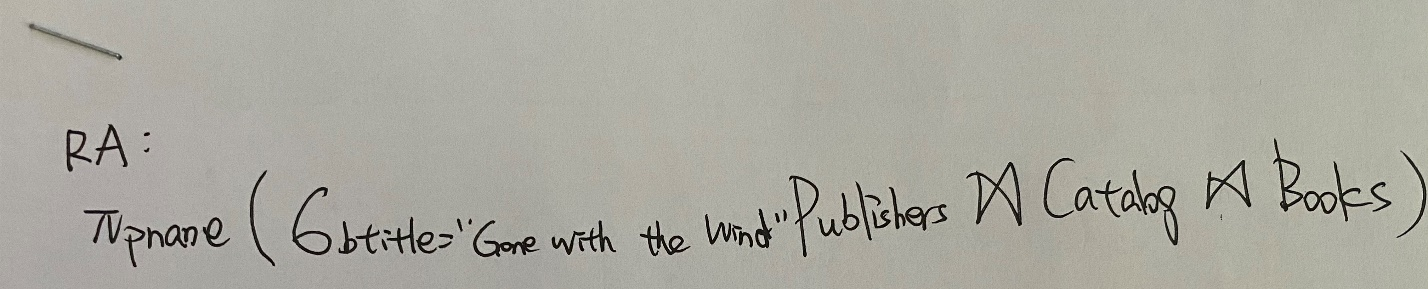 RA:
πpname (σbtitle="Gone with the Wind" Publishers ⋈ Catalog ⋈ Books)